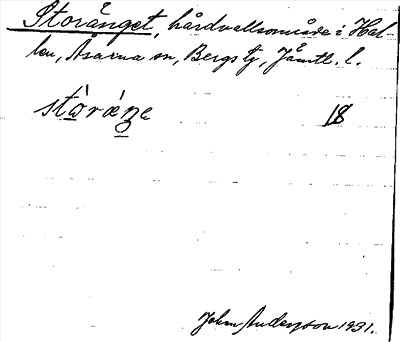 Storänget, hårdvallsområde i Hal-
len, Åsarna sn, Bergs tg, Jämtl. l.
stò̱rǽŋe 18
John Anderson 1931.